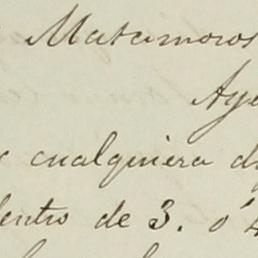 Matamoros
Aye
cualquiera d
dentro de 3. ó 4